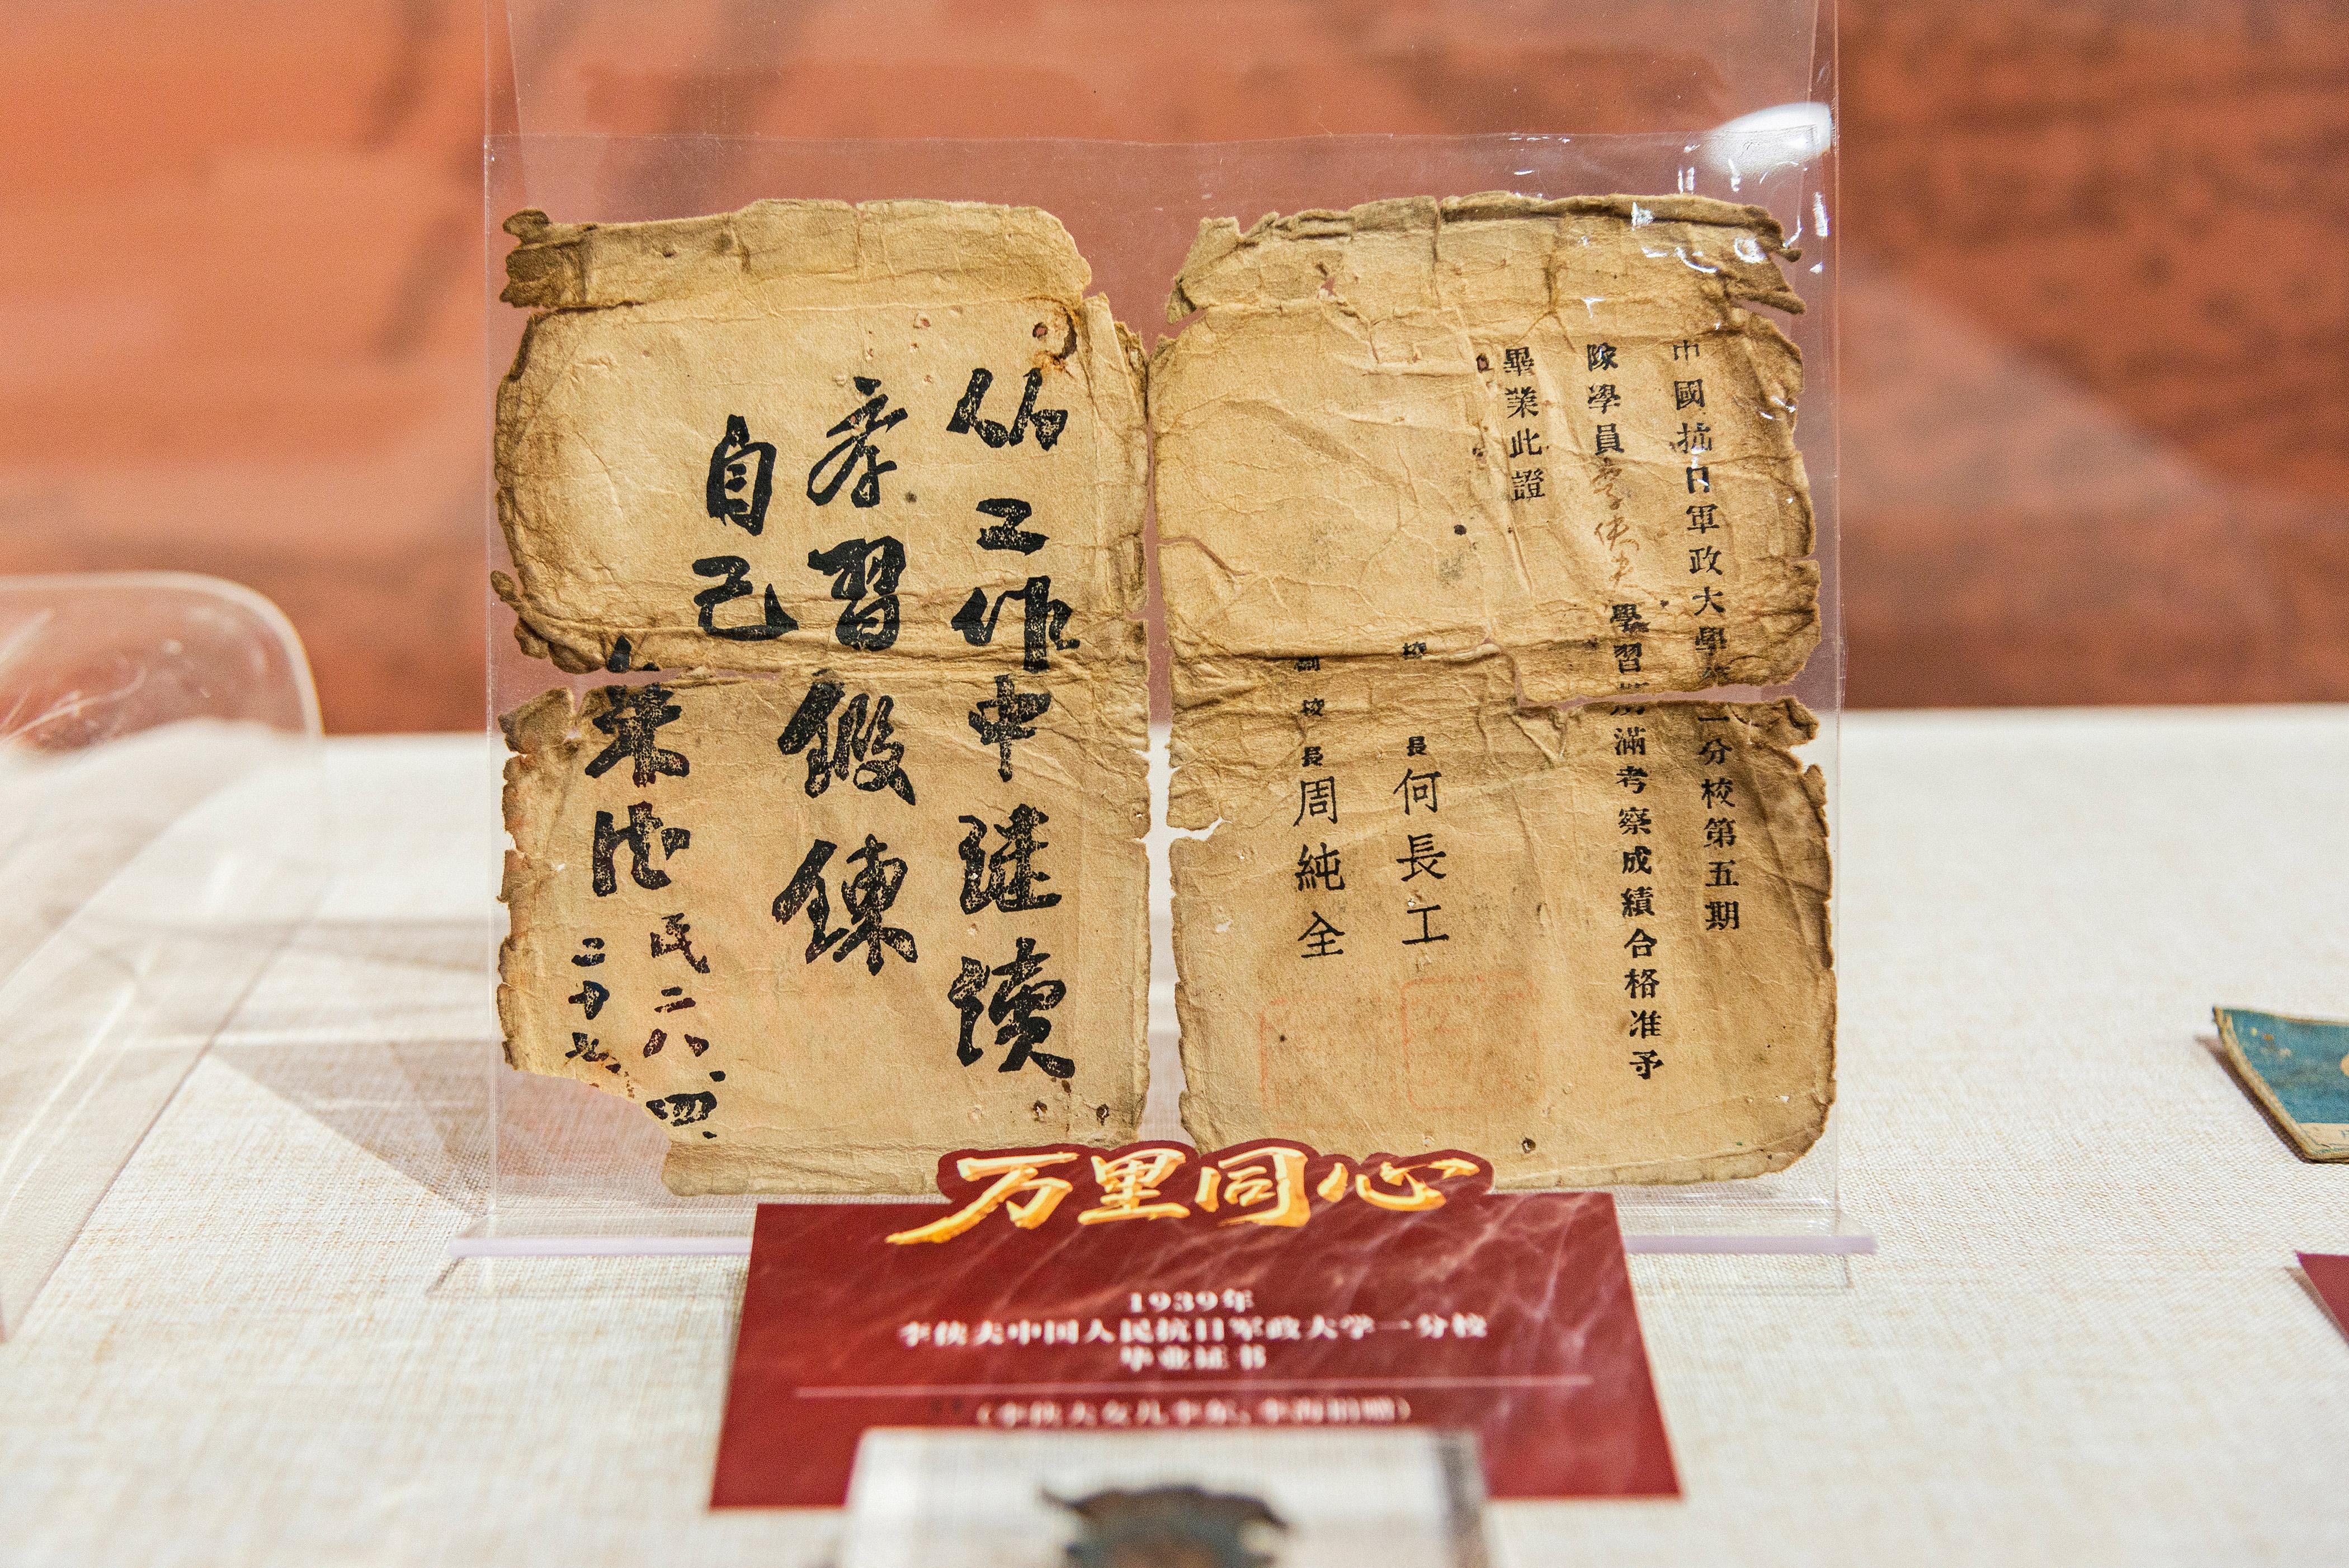 中國抗日軍政大學第一分校第五期
隊學員李俠夫學習期滿考察成績合格准予
畢業此證
校長何長工
副校長周純全
從工作中继续
學習鍛鍊
自己
朱德
民二八、四、
二十七
万里同心
1939年
李侠夫中国人民抗日军政大学一分校
毕业证书